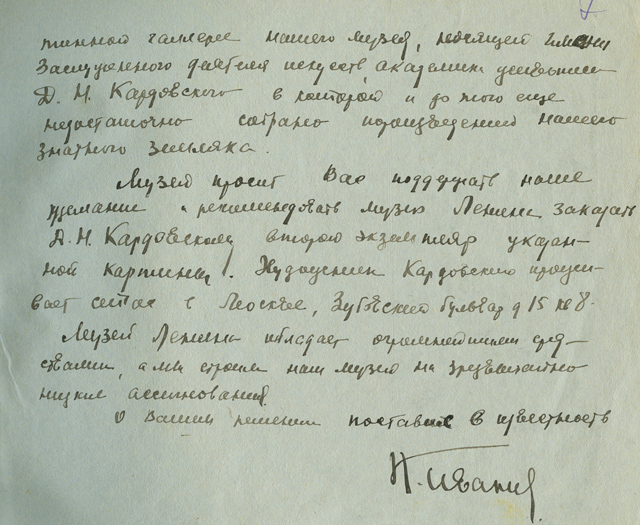 тинной галлерее нашего музея, носящей имени
Заслуженного деятеля искусств, академика живописи
Д. Н. Кардовского в которой и до того еще
недостаточно собрано произведений нашего
знатного земляка.
Музей просит Вас поддержать наше
желание и рекомендовать музею Ленина заказать
Д. Н. Кардовскому второй экземпляр указан-
ной картины. Художник Кардовский прожи-
вает сейчас в Москве, Зубовский бульвар д 15 кв 8.
Музей Ленина обладает огромнейшими сред-
ствами, а мы строим наш музей на чрезвычайно
низкие ассигнования.
О Вашем решении поставьте в известность